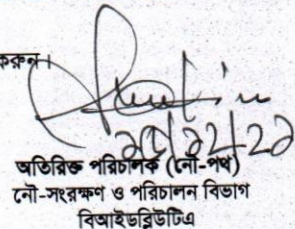 করুন।
অতিরিক্ত পরিচালক (নৌ-পথ)
নৌ-সংরক্ষণ ও পরিচালন বিভাগ
বিআইডব্লিউটিএ